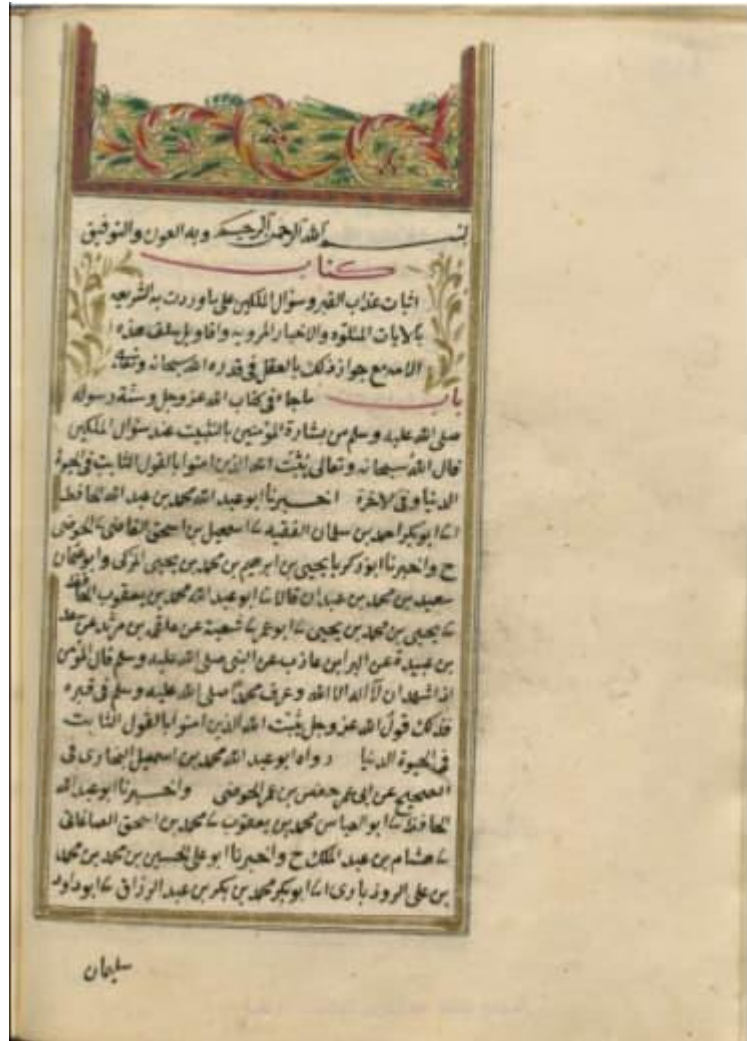 بسم الله الرحمن الرحيم وبه العون والتوفيق
كتاب
اثبات عذاب القبر وسؤال الملكين على ما وردت به الشريعه
بالايات المتلوه والاخبار المرويه واقاويل سلف هذه
الامه مع جواز ذلك بالعقل فى قدره الله سبحانه وتعالى
باب ما جاء فى كتاب الله عز وجل وسنة رسوله
صلى الله عليه وسلم من بشارة المؤمنين بالتثبيت عند سؤال الملكين
قال الله سبحانه وتعالى يثبت الله الذين امنوا بالقول الثابت فى الحيوة
الدنيا وفى الاخرة اخبرنا ابو عبد الله محمد بن عبد الله الحافظ
انا ابو بكر احمد بن سلمان الفقيه نا اسمعيل بن اسحق القاضى نا الحوضى
ح واخبرنا ابو زكريا يحيى بن ابرهيم بن محمد بن يحيى المزكى وابو عثمان
سعيد بن محمد بن عبدان قالا نا ابو عبد الله محمد بن يعقوب الحافظ
نا يحيى بن محمد بن يحيى نا ابو عمر نا شعبة عن علقمة بن مرثد عن سعد
بن عبيدة عن البراء بن عازب عن النبى صلى الله عليه وسلم قال المؤمن
اذا شهد ان لا اله الا الله وعرف محمدا صلى الله عليه وسلم فى قبره
فذلك قول الله عز وجل يثبت الله الذين امنوا بالقول الثابت
فى الحيوة الدنيا رواه ابو عبد الله محمد بن اسمعيل البخارى فى
الصحيح عن ابى عمر حفص بن عمر الحوضى واخبرنا ابو عبد الله
الحافظ نا ابو العباس محمد بن يعقوب نا محمد بن اسحق الصاغانى
نا هشام بن عبد الملك ح واخبرنا ابو على الحسين بن محمد بن محمد
بن على الروذبارى انا ابو بكر محمد بن بكر بن عبد الرزاق نا ابو داود
سليمان